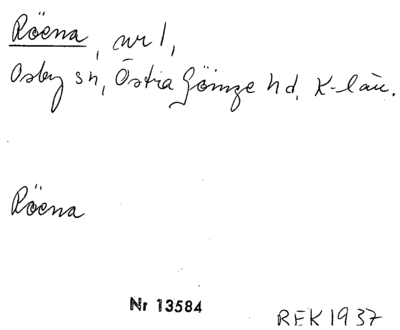 Röena, nr 1,
Osby sn, Östra Göinge hd, K-län.
Röena
Nr 13584
REK 1937